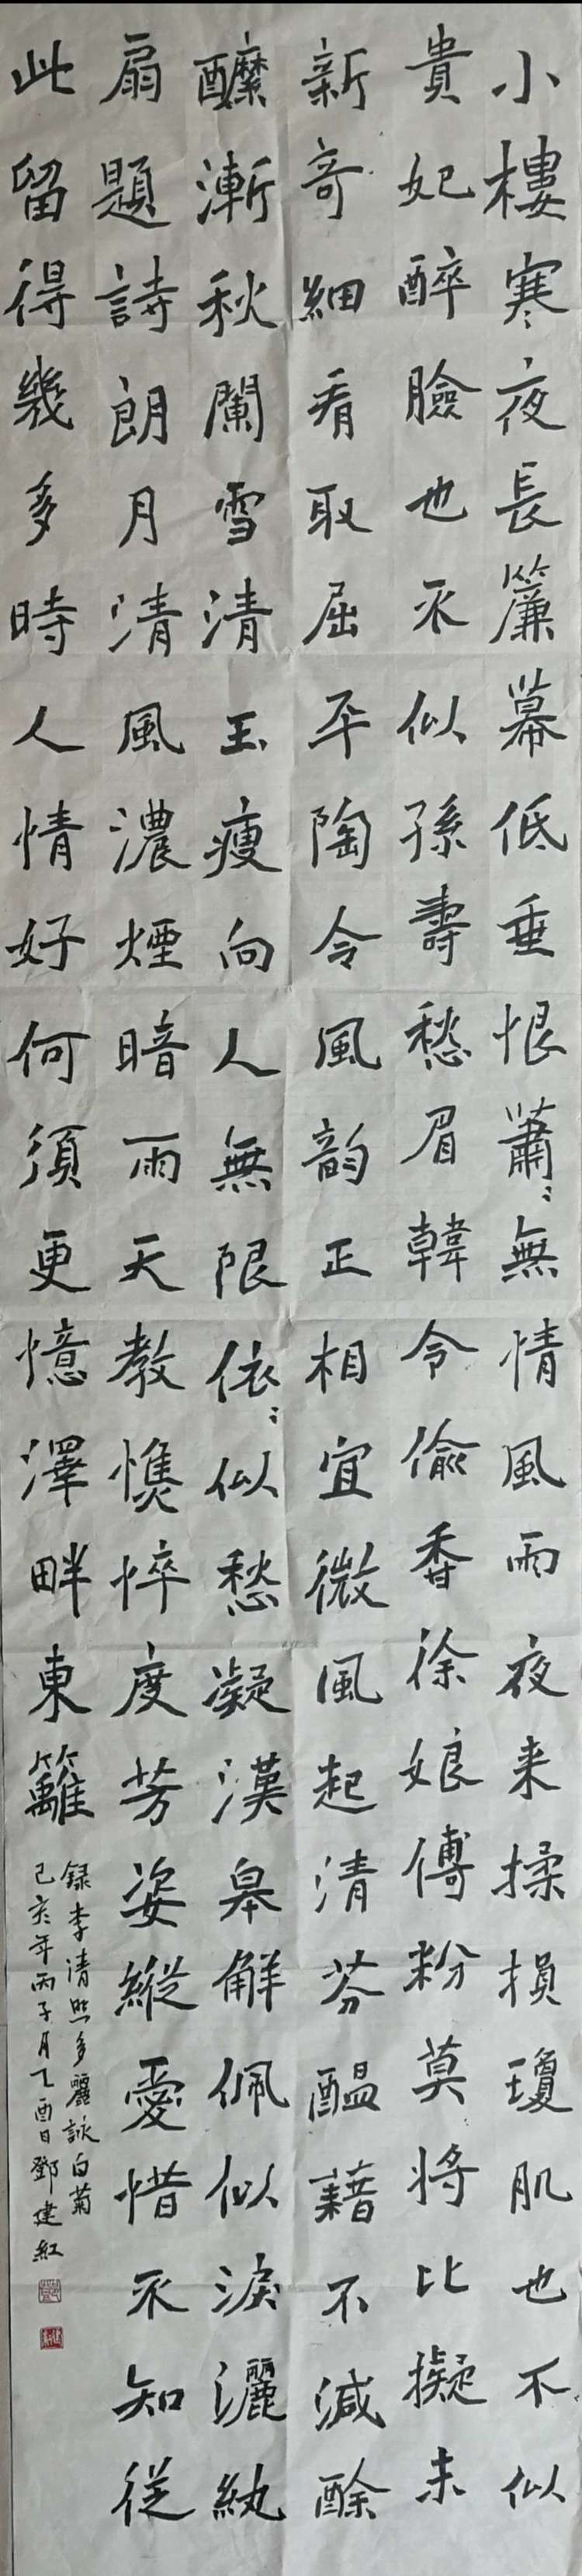 小樓寒夜長簾幕低垂恨蕭〻無情風雨夜来揉損瓊肌也不似
貴妃醉臉也不似孫壽愁眉韓令偷香徐娘傅粉莫將比擬未
新奇細看取屈平陶令風韵正相宜微風起清芬醞藉不減酴
醾漸秋闌雪清玉瘦向人無限依〻似愁凝漢皋解佩似淚灑紈
扇題詩朗月清風濃煙暗雨天教憔悴度芳姿縱愛惜不知從
此留得幾多時人情好何須更憶澤畔東籬
録李清照多麗詠白菊
己亥年丙子月乙酉日鄧建紅